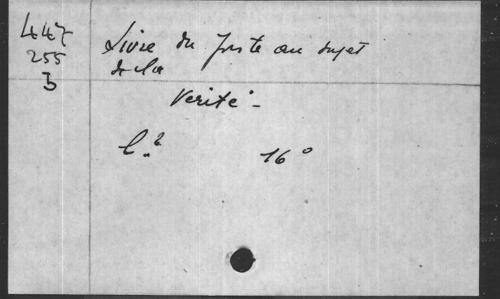 447
255
B
Livre du Juste au sujet
de la
Verité -
16°